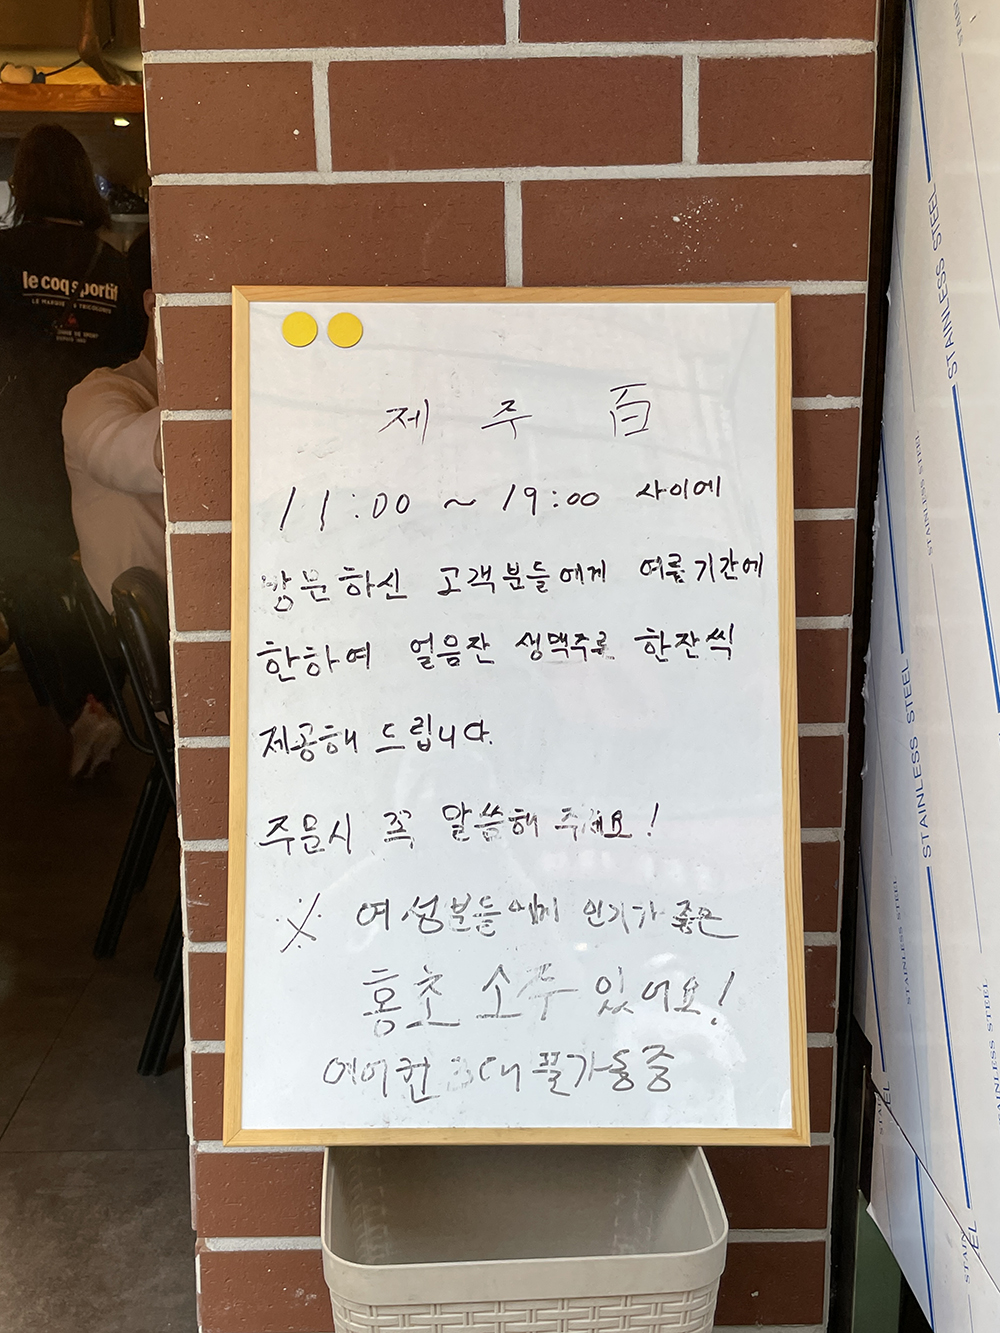 le coq sportif
제 주 百
11:00 ~ 19:00 사이에
방문하신 고객분들에게 여름기간에
한하여 얼음잔 생맥주로 한잔씩
제공해 드립니다.
주문시 꼭 말씀해 주세요!
※ 여성분들에게 인기가 좋은
홍초 소주 있어요!
에어컨 3대 풀가동중
STAINLESS STEEL
STAINLESS STEEL
STAINLESS STEEL
STAINLESS STEEL
STAINLESS STEEL